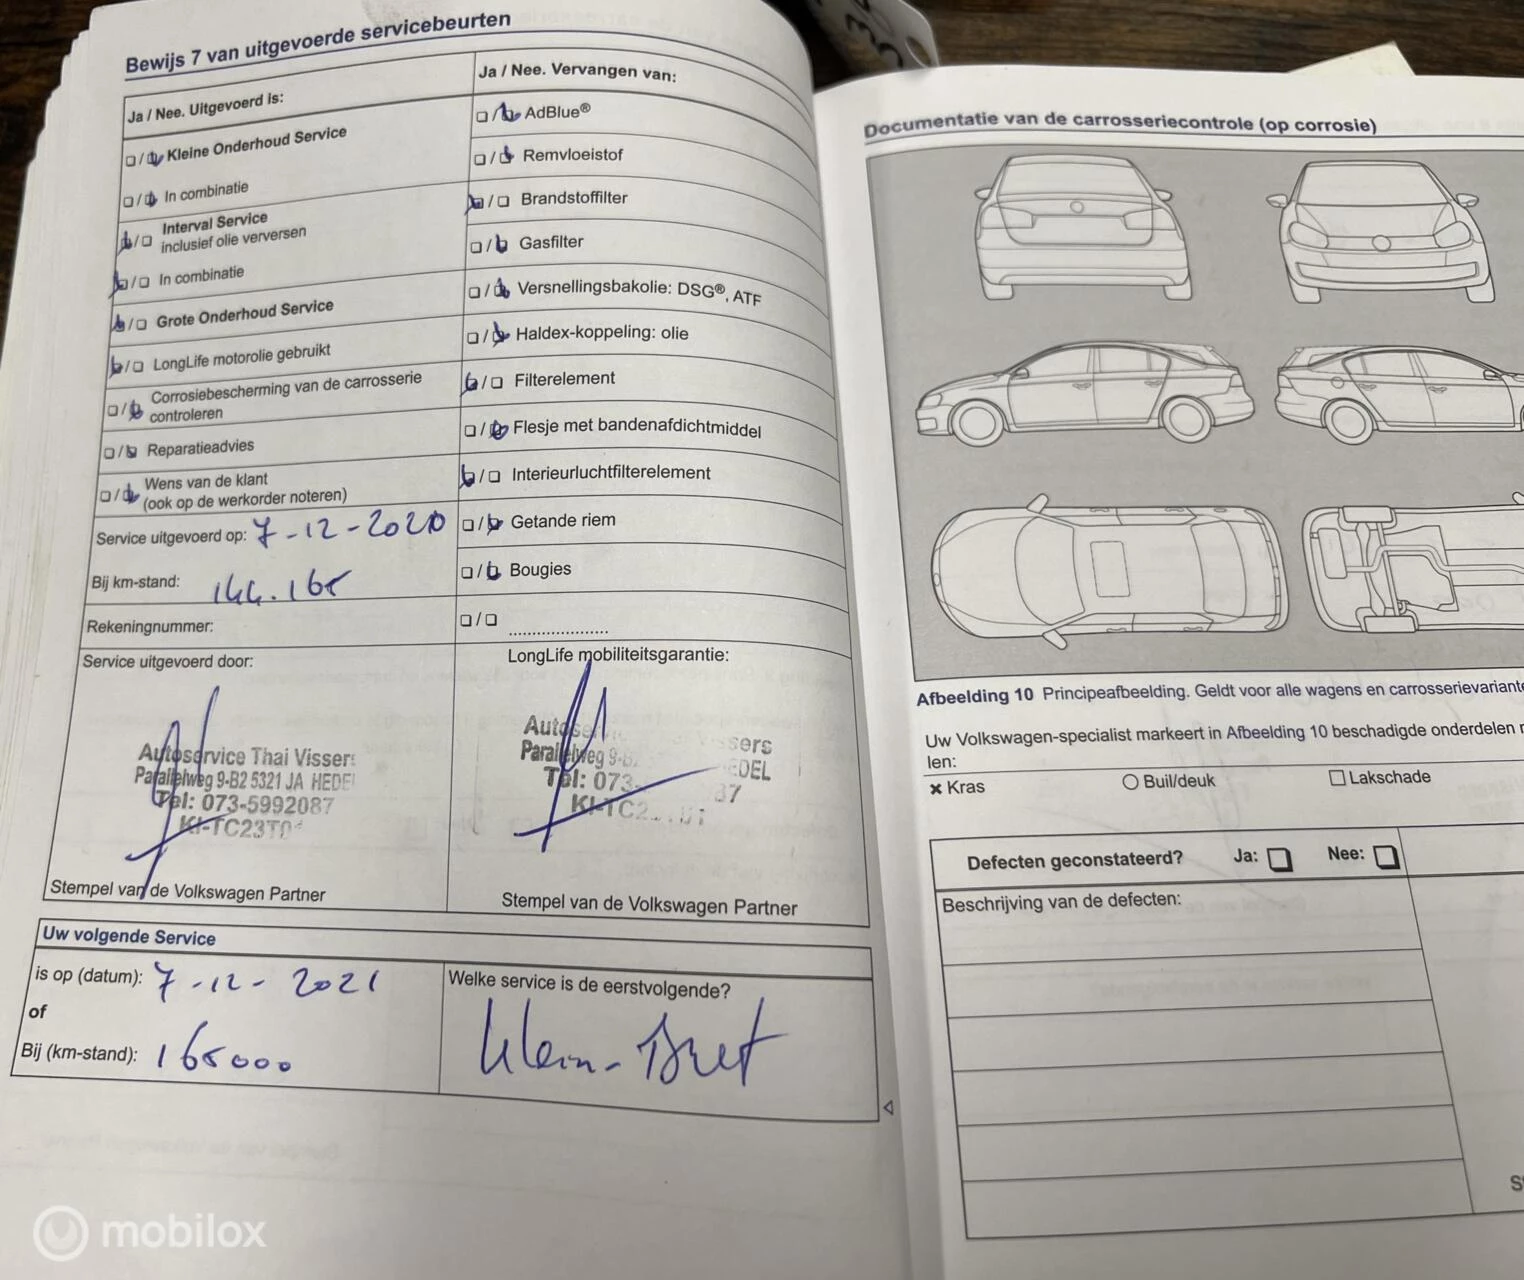 Bewijs 7 van uitgevoerde servicebeurten
Ja / Nee. Uitgevoerd is:
☐ / ☐ Kleine Onderhoud Service
☐ / ☐ In combinatie
☐ / ☐ Interval Service
inclusief olie verversen
☐ / ☐ In combinatie
☐ / ☐ Grote Onderhoud Service
☐ / ☐ LongLife motorolie gebruikt
☐ / ☐ Corrosiebescherming van de carrosserie
controleren
☐ / ☐ Reparatieadvies
☐ / ☐ Wens van de klant
(ook op de werkorder noteren)
Service uitgevoerd op: 7-12-2020
Bij km-stand: 144.165
Rekeningnummer:
Service uitgevoerd door:
Autoservice Thai Vissers
Parallelweg 9-B2 5321 JA HEDEL
Tel: 073-5992087
KI-TC23T0
Stempel van de Volkswagen Partner
Ja / Nee. Vervangen van:
☐ / ☐ AdBlue®
☐ / ☐ Remvloeistof
☐ / ☐ Brandstoffilter
☐ / ☐ Gasfilter
☐ / ☐ Versnellingsbakolie: DSG®, ATF
☐ / ☐ Haldex-koppeling: olie
☐ / ☐ Filterelement
☐ / ☐ Flesje met bandenafdichtmiddel
☐ / ☐ Interieurluchtfilterelement
☐ / ☐ Getande riem
☐ / ☐ Bougies
☐ / ☐ ......................
LongLife mobiliteitsgarantie:
Parallelweg 9-B
Tel: 073-
Stempel van de Volkswagen Partner
Uw volgende Service
is op (datum): 7-12-2021
of
Bij (km-stand): 165000
Welke service is de eerstvolgende?
klein-Beurt
Documentatie van de carrosseriecontrole (op corrosie)
Afbeelding 10 Principeafbeelding. Geldt voor alle wagens en carrosserievariante
Uw Volkswagen-specialist markeert in Afbeelding 10 beschadigde onderdelen
len:
✖ Kras ○ Buil/deuk ☐ Lakschade
Defecten geconstateerd? Ja: ☐ Nee: ☐
Beschrijving van de defecten:
mobilox